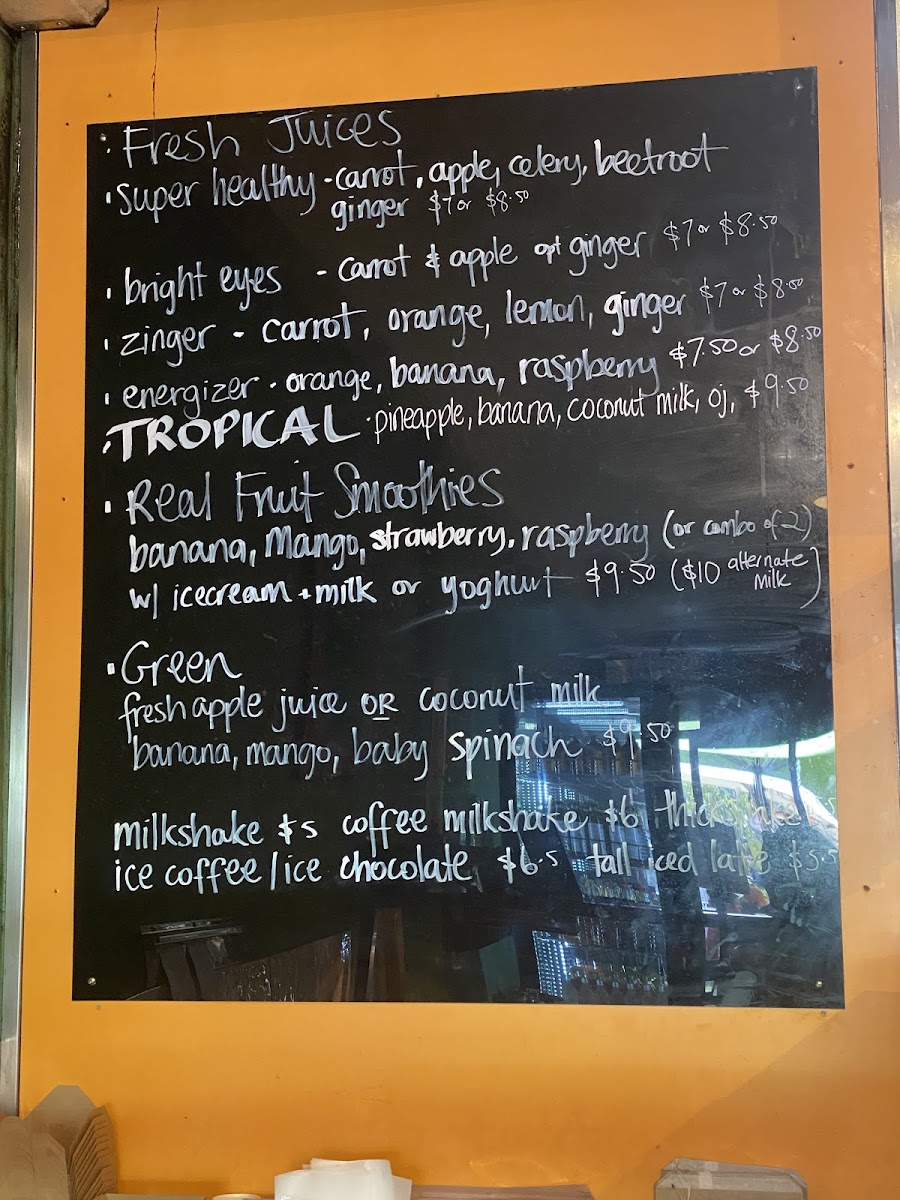 · Fresh Juices
· super healthy - carrot, apple, celery, beetroot
ginger $7 or $8.50
· bright eyes - carrot & apple opt ginger $7 or $8.50
· zinger - carrot, orange, lemon, ginger $7 or $8.00
· energizer - orange, banana, raspberry $7.50 or $8.50
· TROPICAL - pineapple, banana, coconut milk, oj, $9.50
· Real Fruit Smoothies
banana, Mango, strawberry, raspberry (or combo of 2)
w/ icecream + milk or yoghurt $9.50 ($10 alternate milk)
· Green
fresh apple juice OR coconut milk
banana, mango, baby spinach $9.50
milkshake $5 coffee milkshake $6 thickshake
ice coffee / ice chocolate $6.5 tall iced late $5.5